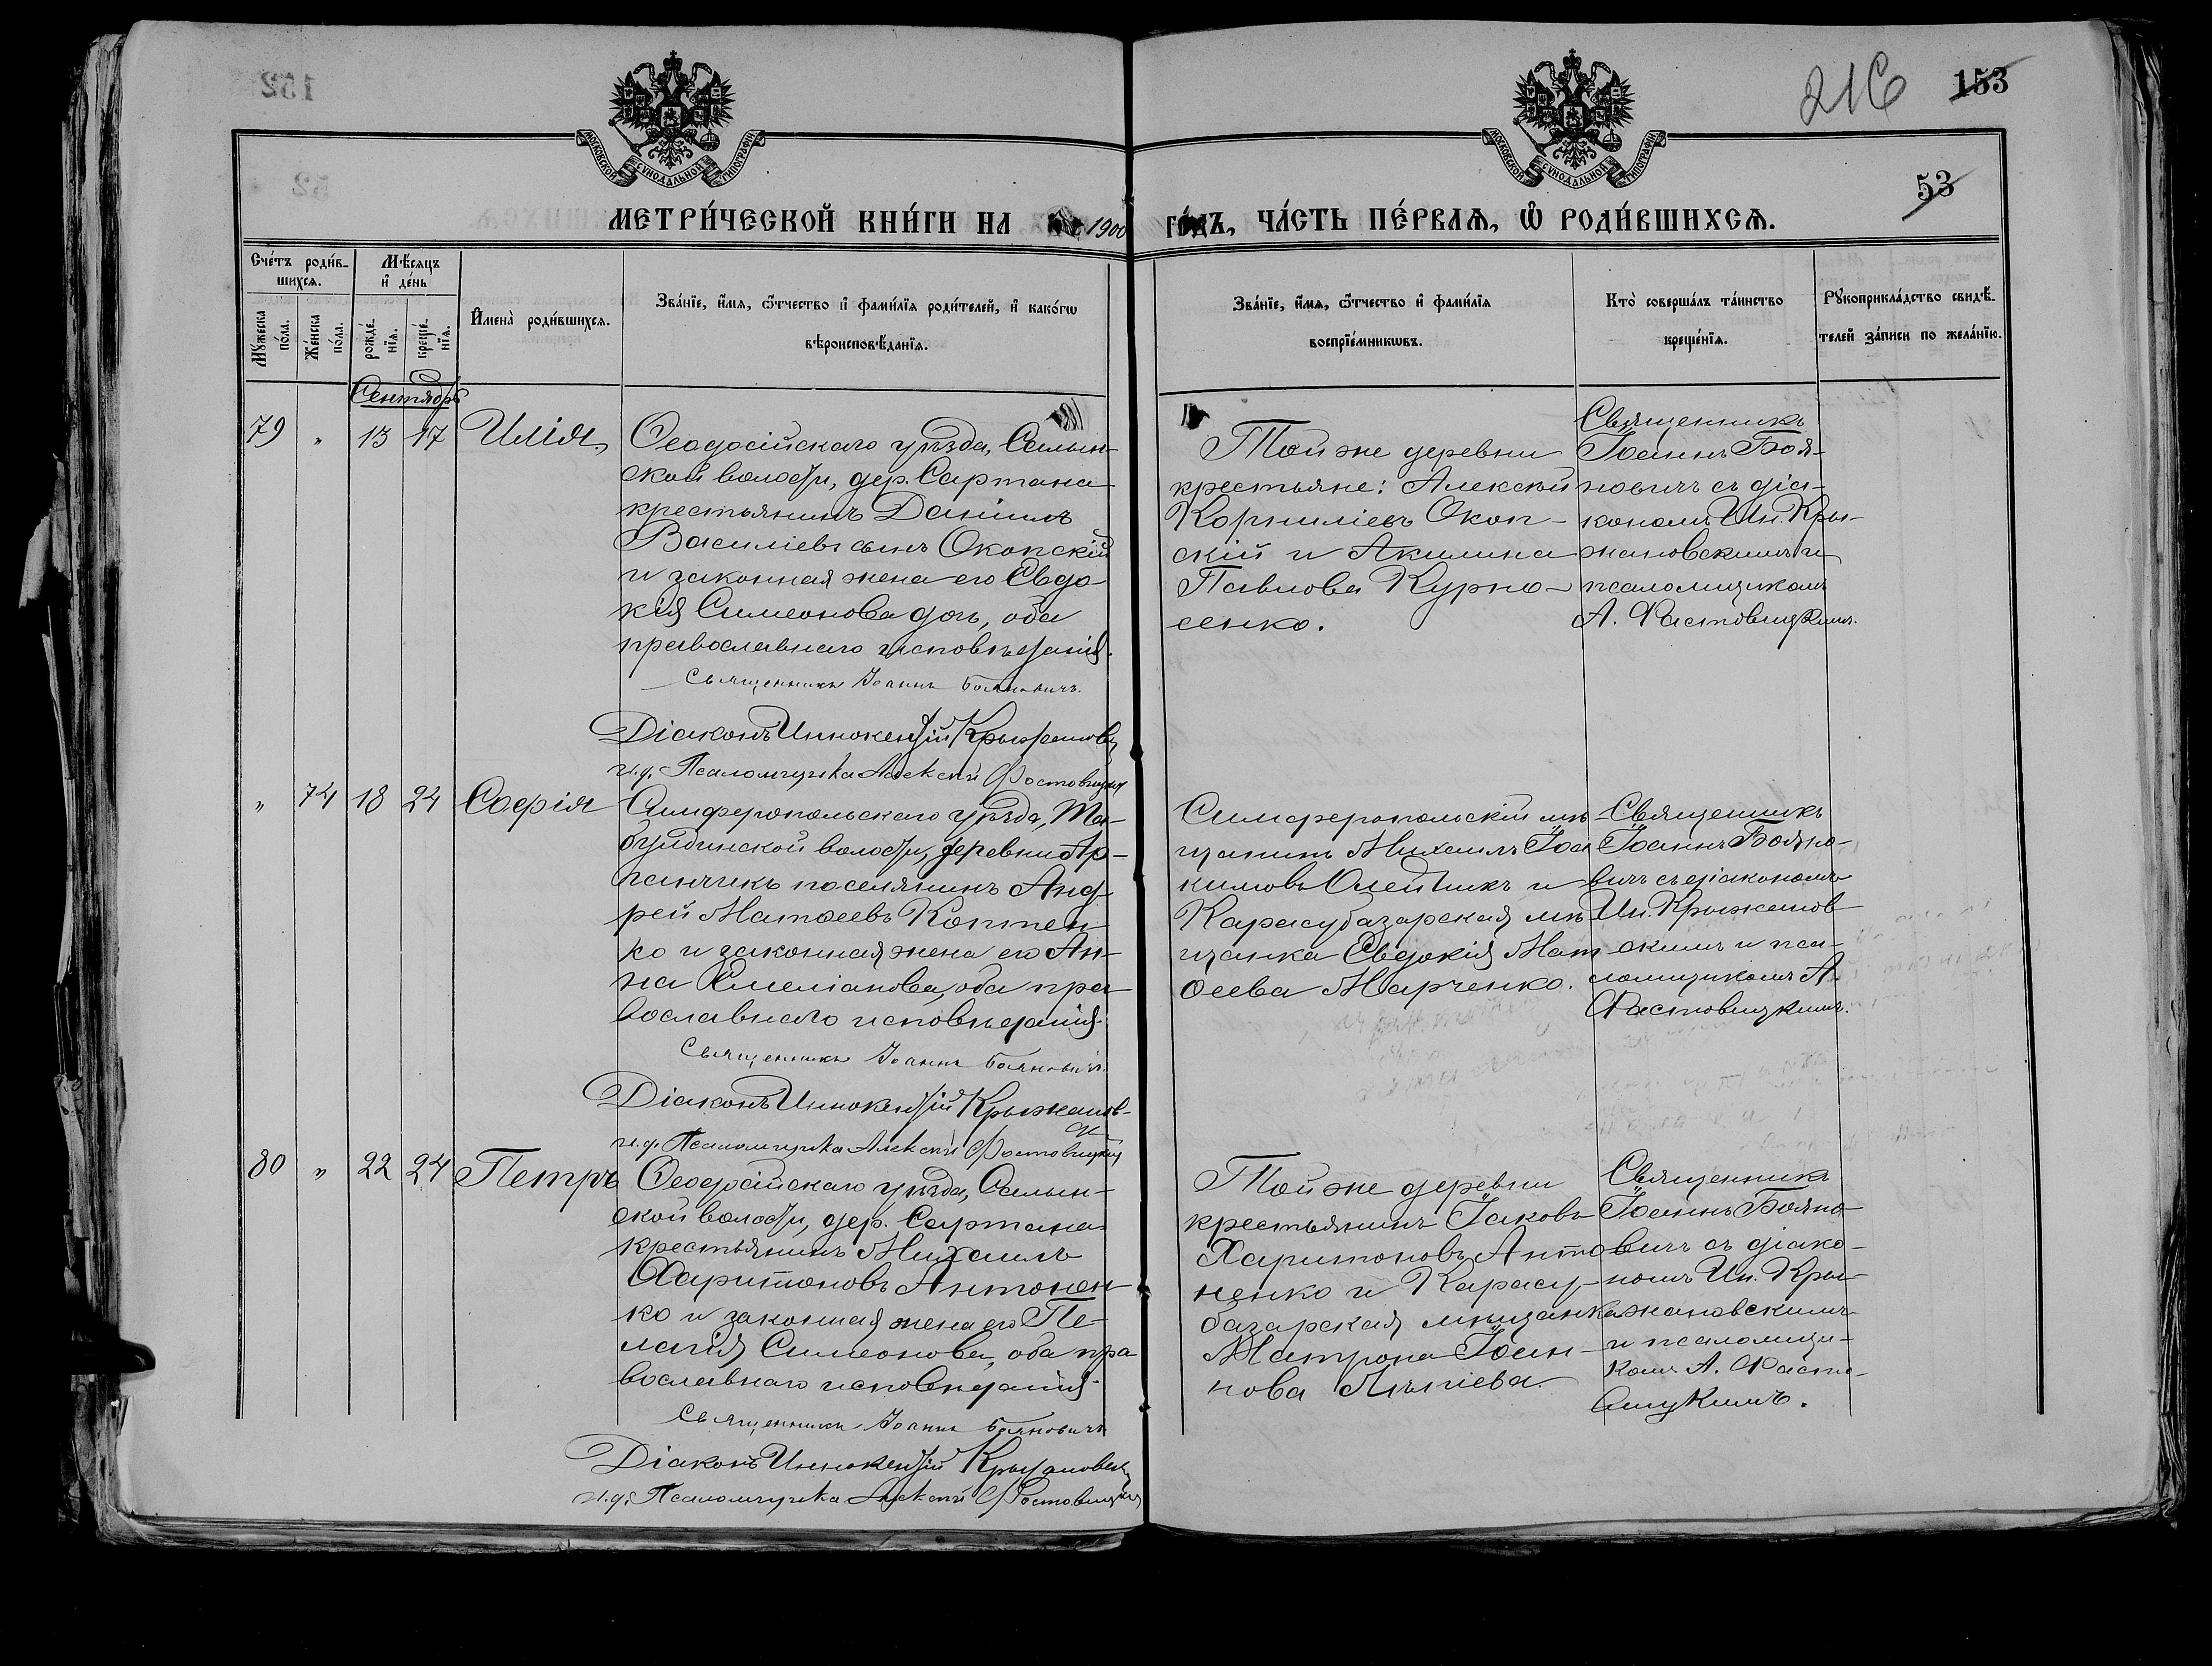 216 153
53
МОСКОВСКОЙ СѴНОДАЛЬНОЙ ТИПОГРАФІИ
МОСКОВСКОЙ СѴНОДАЛЬНОЙ ТИПОГРАФІИ
МЕТРИ́ЧЕСКОЙ КНИ́ГИ НА 1900 ГО́ДЪ, ЧА́СТЬ ПЕ́РВАѦ, Ѽ РОДИ́ВШИХСѦ.
Сче́тъ роди́в-
шихсѧ.
Мꙋ́жеска
по́ла.
Же́нска
по́ла.
Мѣ́сѧцъ
и҆ де́нь
рожде́-
нїѧ.
креще́-
нїѧ.
И҆мена̀ роди́вшихсѧ.
Зва́нїе, и҆́мѧ, ѻ҆́тчество и҆ фами́лїѧ роди́телей, и҆ како́гѡ
вѣроисповѣ́данїѧ.
Зва́нїе, и҆́мѧ, ѻ҆́тчество и҆ фами́лїѧ
воспрїе́мникѡвъ.
Кто̀ соверша́лъ та́инство
креще́нїѧ.
Рꙋкоприкла́дство свидѣ́-
телей за́писи по жела́нїю.
Сентябрь
79 " 13 17 Илія
Ѳеодосійскаго уѣзда, Салын-
ской волости, дер. Сартана
крестьянинъ Даніилъ
Василіевъ сынъ Окопскій
и законная жена его Евдо-
кія Симеонова дочь, оба
православнаго исповѣданія.
Священникъ Іоаннъ Бояновичъ.
Діаконъ Иннокентій Крыжановск
и.д. Псаломщика Алексѣй Фастовицкій
Той же деревни
крестьяне: Алексѣй
Корниліевъ Окоп-
скій и Акилина
Павлова Курно-
сенко.
Священникъ
Іоаннъ Боя-
новичъ съ діа-
кономъ Ин. Кры-
жановскимъ и
псаломщикомъ
А. Фастовицкимъ.
" 74 18 24 Софія
Симферопольскаго уѣзда, Та-
булдинской волости, деревни Ар-
ганчикъ поселянинъ Анд-
рей Матѳеевъ Коптен-
ко и законная жена его Ан-
на Емеліанова, оба пра-
вославнаго исповѣданія.
Священникъ Іоаннъ Бояновичъ.
Діаконъ Иннокентій Крыжанов-
и.д. Псаломщика Алексѣй Фастовицкій
Симферопольскій мѣ-
щанинъ Михаилъ Іоа
кимовъ Олейникъ и
Карасубазарская мѣ-
щанка Евдокія Мат-
ѳеева Марченко.
Священникъ
Іоаннъ Бояно-
вичъ съ діакономъ
Ин. Крыжанов-
скимъ и пса-
ломщикомъ А.
Фастовицкимъ.
80 " 22 24 Петръ
Ѳеодосійскаго уѣзда, Салын-
ской волости, дер. Сартана
крестьянинъ Михаилъ
Харитоновъ Антонен-
ко и законная жена его Пе-
лагія Симеонова, оба пра
вославнаго исповѣданія.
Священникъ Іоаннъ Бояновичъ
Діаконъ Иннокентій Крыжановск
и.д. Псаломщика Алексѣй Фастовицкій
Той же деревни
крестьянинъ Іаковъ
Харитоновъ Анто-
ненко и Карасу-
базарская мѣщанка
Матрона Іоан-
нова
Священникъ
Іоаннъ Бояно-
вичъ съ діако-
номъ Ин. Кры-
жановскимъ
и псаломщи-
комъ А. Фасто-
вицкимъ.